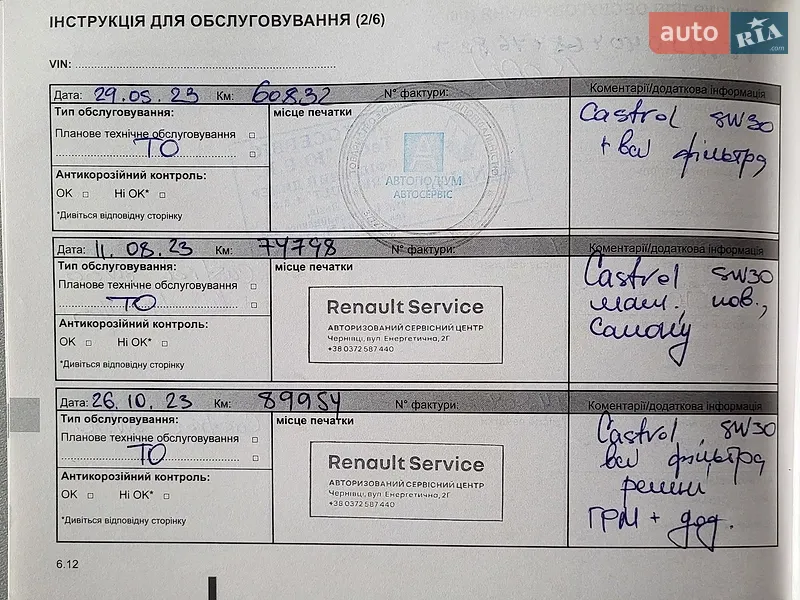 ІНСТРУКЦІЯ ДЛЯ ОБСЛУГОВУВАННЯ (2/6)
auto RIA .com
VIN:
Дата: 29.05.23 Км: 60832 N° фактури: Коментарі/додаткова інформація
Тип обслуговування: місце печатки
Планове технічне обслуговування
ТО
Антикорозійний контроль:
ОК Ні ОК*
*Дивіться відповідну сторінку
АВТОПОДІУМ
АВТОСЕРВІС
Castrol 5W30
+ всі фільтра
Дата: 11.08.23 Км: 74748 N° фактури: Коментарі/додаткова інформація
Тип обслуговування: місце печатки
Планове технічне обслуговування
ТО
Антикорозійний контроль:
ОК Ні ОК*
*Дивіться відповідну сторінку
Renault Service
АВТОРИЗОВАНИЙ СЕРВІСНИЙ ЦЕНТР
Чернівці, вул. Енергетична, 2Г
+38 0372 587 440
Castrol 5W30
маш., пов.,
салону
Дата: 26.10.23 Км: 89954 N° фактури: Коментарі/додаткова інформація
Тип обслуговування: місце печатки
Планове технічне обслуговування
ТО
Антикорозійний контроль:
ОК Ні ОК*
*Дивіться відповідну сторінку
Renault Service
АВТОРИЗОВАНИЙ СЕРВІСНИЙ ЦЕНТР
Чернівці, вул. Енергетична, 2Г
+38 0372 587 440
Castrol 5W30
всі фільтра
ремні
ГРМ + дод.
6.12